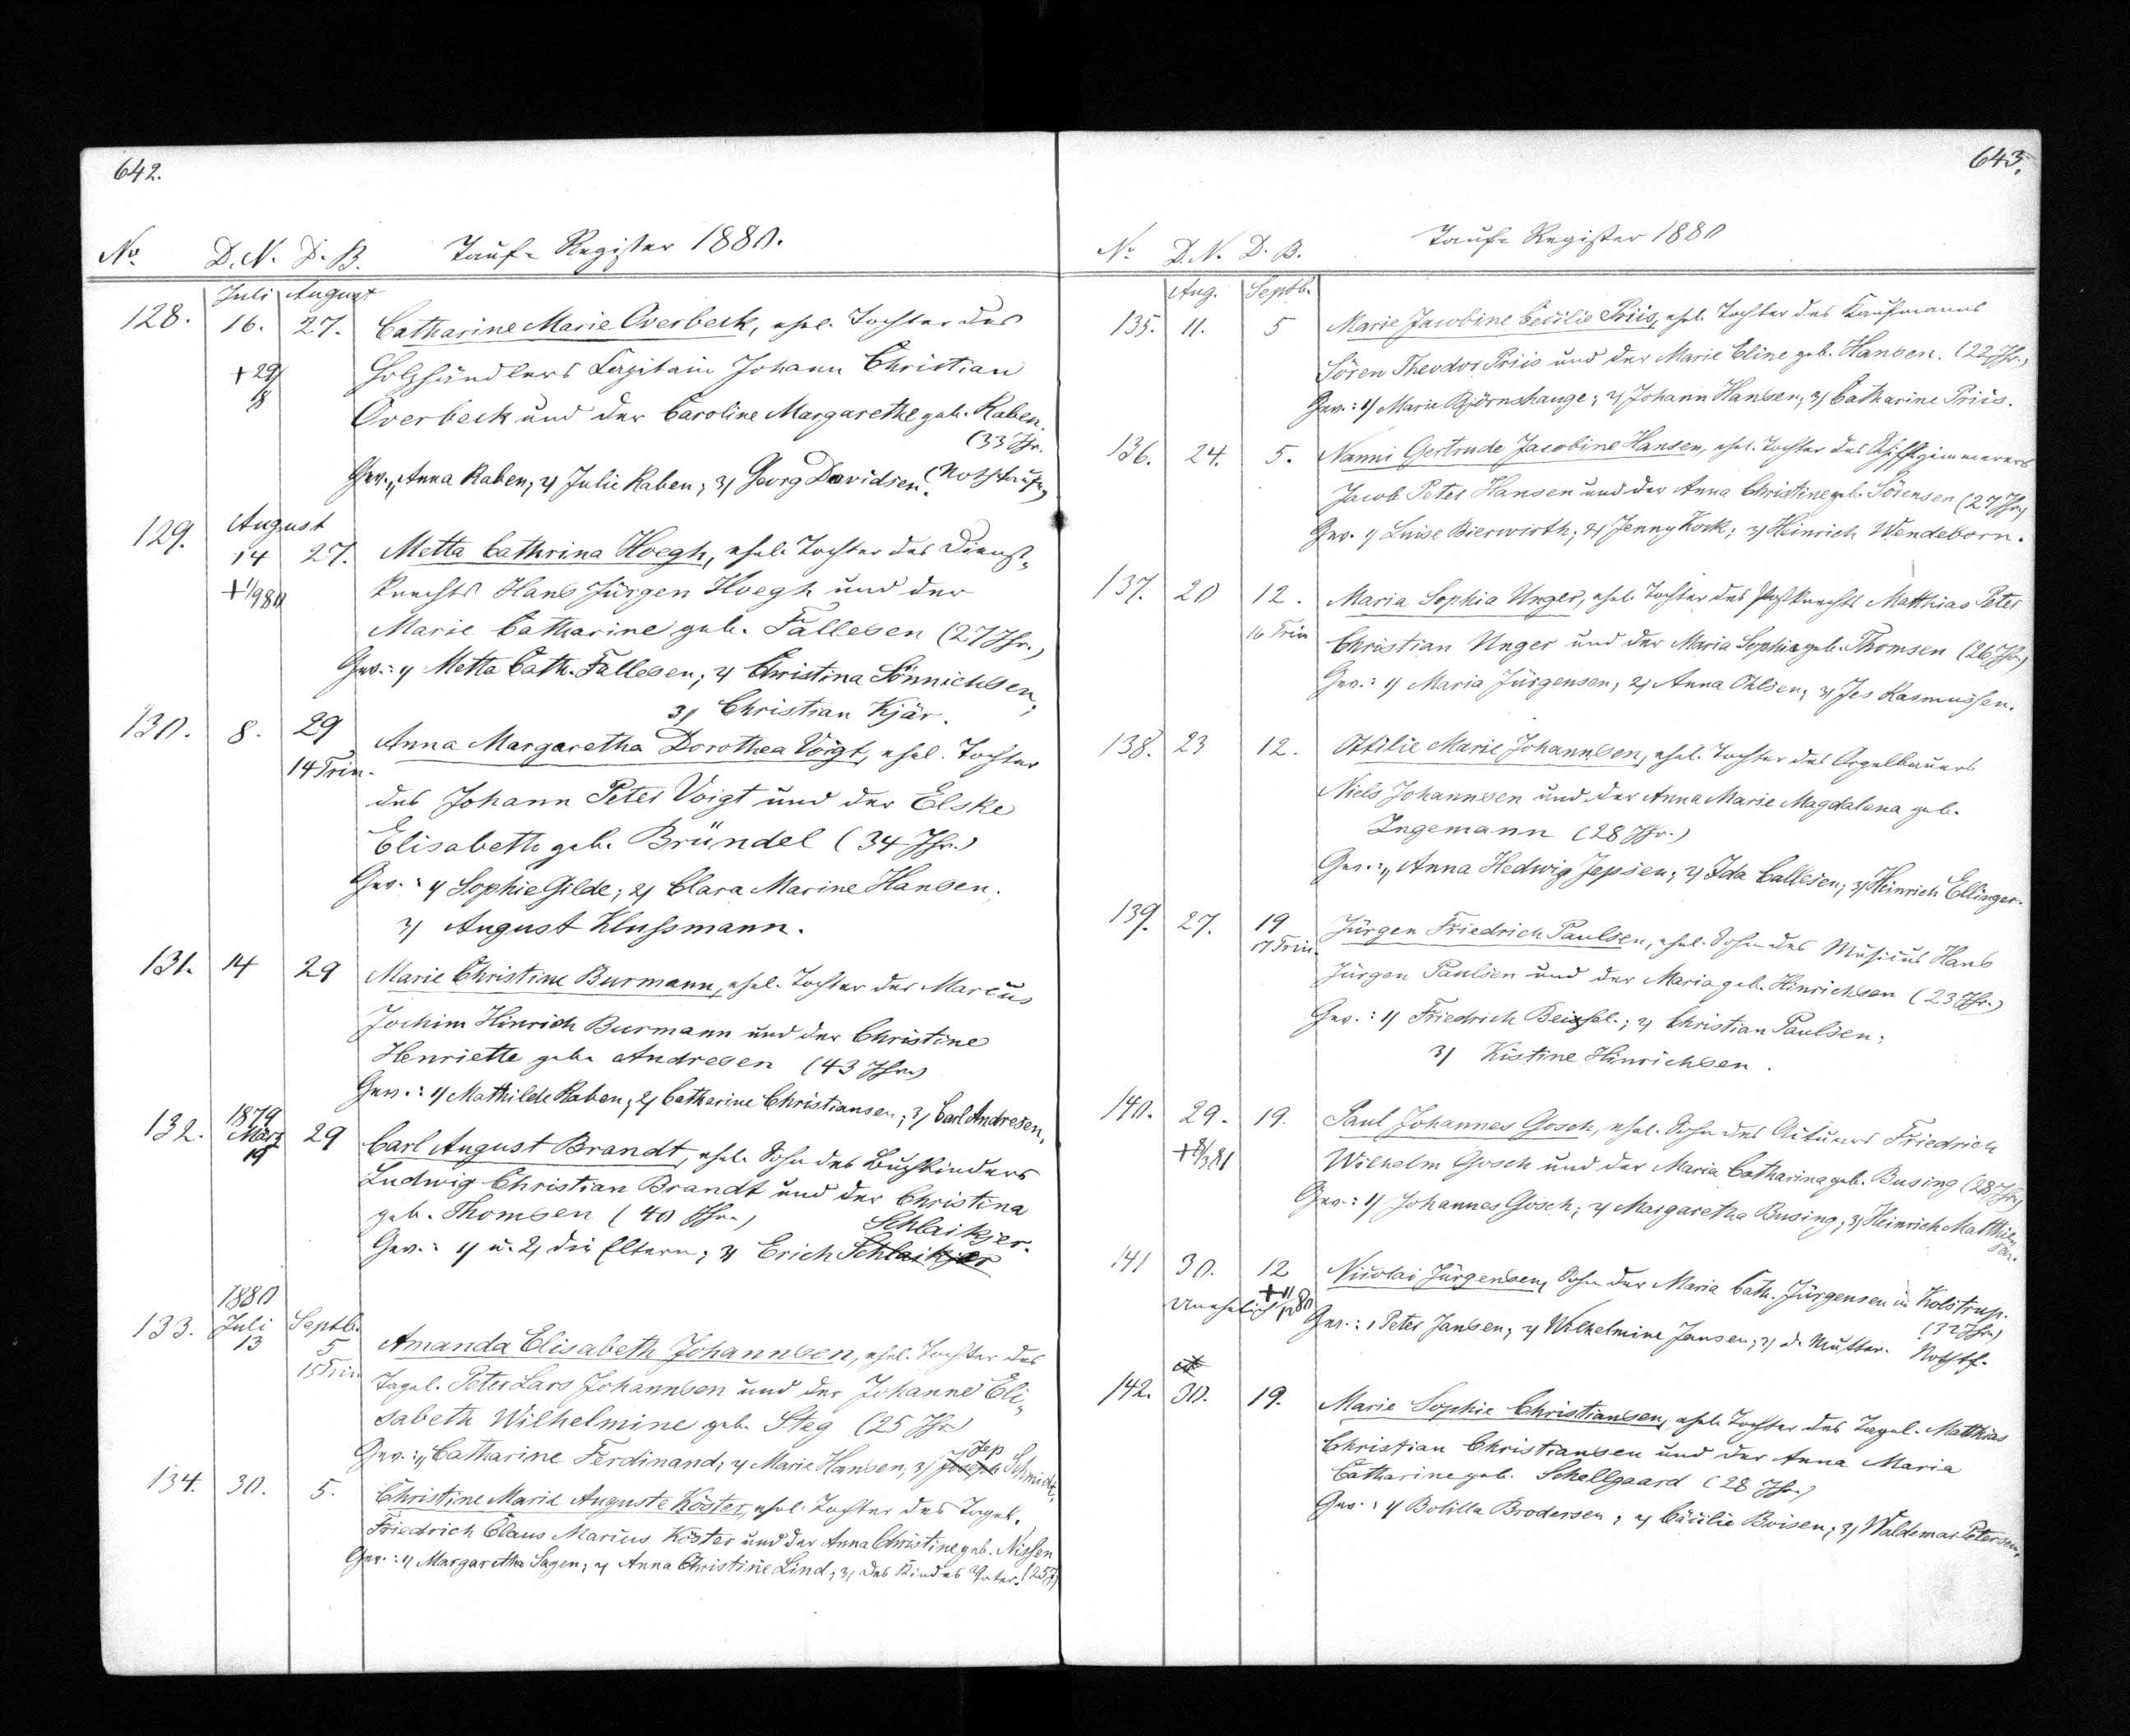 642.
No. D. N. D. B. Tauf- Register 1880.
Juli August
128. 16. 27. Catharine Marie Overbeck, ehel. Tochter des
+ 29/8 Holzhändlers Capitain Johann Christian
Overbeck und der Caroline Margarethe geb. Raben.
(33 Jhr.
Gev. 1) Anna Raben; 2) Julie Raben; 3) Georg Davidsen. (Nothtaufe)
August
129. 14 27. Metta Cathrina Hoegh, ehel. Tochter des Dienst-
+ 1/9 80 knechts Hans Jürgen Hoegh und der
Marie Catharine geb. Fallesen (27 Jhr.)
Gev.: 1) Metta Cath. Fallesen; 2) Christina Sönnichsen;
3) Christian Kjär.
130. 8. 29 Anna Margaretha Dorothea Voigt, ehel. Tochter
14 Trin. des Johann Peter Voigt und der Elske
Elisabeth geb. Bründel (34 Jhr.)
Gev.: 1) Sophie Gilde; 2) Clara Marine Hansen.
3) August Klussmann.
131. 14 29 Marie Christine Burmann, ehel. Tochter des Marcus
Jochim Hinrich Burmann und der Christine
Henriette geb. Andresen (43 Jhr.)
Gev.: 1) Mathilde Raben; 2) Catharine Christiansen; 3) Carl Andresen.
1879
132. März 19 29 Carl August Brandt, ehel. Sohn des Buchbinders
Ludwig Christian Brandt und der Christina
geb. Thomsen (40 Jhr.) Schlaikjer.
Gev.: 1) u. 2) die Eltern; 3) Erich Schlaikjer
1880
133. Juli Septb.
13 5 Amanda Elisabeth Johannsen, ehel. Tochter des
15 Trin Tagel. Peter Lars Johannsen und der Johanne Eli-
sabeth Wilhelmine geb. Steg (25 Jhr.)
Jep
Gev.: 1) Catharine Ferdinand; 2) Marie Hansen; 3) Joseph Schmidt.
134. 30. 5. Christine Marie Auguste Köster, ehel. Tochter des Tagel.
Friedrich Claus Marius Köster und der Anna Christine geb. Nissen
Gev.: 1) Margaretha Sagen; 2) Anna Christine Lind; 3) des Kindes Vater. (25 J)
643.
No. D. N. D. B. Tauf- Register 1880
Aug. Septb.
135. 11. 5 Marie Jacobine Cecilie Priis, ehel. Tochter des Kaufmanns
Sören Theodor Priis und der Marie Eline geb. Hansen. (22 Jhr.)
Gev.: 1) Marie Björnshauge; 2) Johann Hansen; 3) Catharine Priis.
136. 24. 5. Nanni Gertrude Jacobine Hansen, ehel. Tochter des Schiffzimmerers
Jacob Peter Hansen und der Anna Christine geb. Sörensen (27 Jhr.)
Gev. 1) Luise Bierwirth; 2) Jenny Kock; 3) Heinrich Wendeborn.
137. 20 12. Maria Sophia Unger, ehel. Tochter des Postknechts Matthias Peter
16 Trin Christian Unger und der Maria Sophia geb. Thomsen (26 Jhr.)
Gev.: 1) Maria Jürgensen; 2) Anna Ohlsen; 3) Jes Rasmussen.
138. 23 12. Ottilie Marie Johannsen, ehel. Tochter des Orgelbauers
Niels Johannsen und der Anna Marie Magdalena geb.
Ingemann (28 Jhr.)
Gev.: 1) Anna Hedwig Jepsen; 2) Ida Callesen; 3) Heinrich Ellinger.
139. 27. 19 Jürgen Friedrich Paulsen, ehel. Sohn des Musicus Hans
17 Trin. Jürgen Paulsen und der Maria geb. Hinrichsen (23 Jhr.)
Gev.: 1) Friedrich; 2) Christian Paulsen;
3) Kistine Hinrichsen.
140. 29. 19. Paul Johannes Gosch, ehel. Sohn des Friedrich
+ 8/3 81 Wilhelm Gosch und der Maria Catharina geb. Busing (28 Jhr.)
Gev.: 1) Johannes Gosch; 2) Margaretha Busing; 3) Heinrich Matthiesen.
141 30. 12 Nicolai Jürgensen, Sohn der Maria Cath. Jürgensen in Kolstrup.
Unehelich (32 Jhr.)
Gev.: 1 Peter Jansen; 2) Wilhelmine Jansen; 3) d. Mutter. Nothtf.
142. 30. 19. Marie Sophie Christiansen, ehel. Tochter des Tagel. Matthias
Christian Christiansen und der Anna Maria
Catharine geb. Schellgaard (28 Jhr.)
Gev.: 1) Bolilla Brodersen; 2) Cäcilie Boisen; 3) Waldemar Petersen.